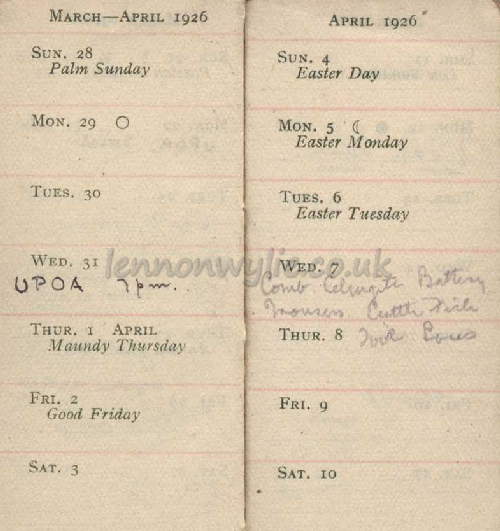 MARCH—APRIL 1926
SUN. 28
Palm Sunday
MON. 29 ○
TUES. 30
WED. 31
UPOA 7pm.
THUR. 1 APRIL
Maundy Thursday
FRI. 2
Good Friday
SAT. 3
APRIL 1926
SUN. 4
Easter Day
MON. 5 ☾
Easter Monday
TUES. 6
Easter Tuesday
WED. 7
Comb. Battery
Trousers. Cuttle
THUR. 8
FRI. 9
SAT. 10
lennonwylie.co.uk